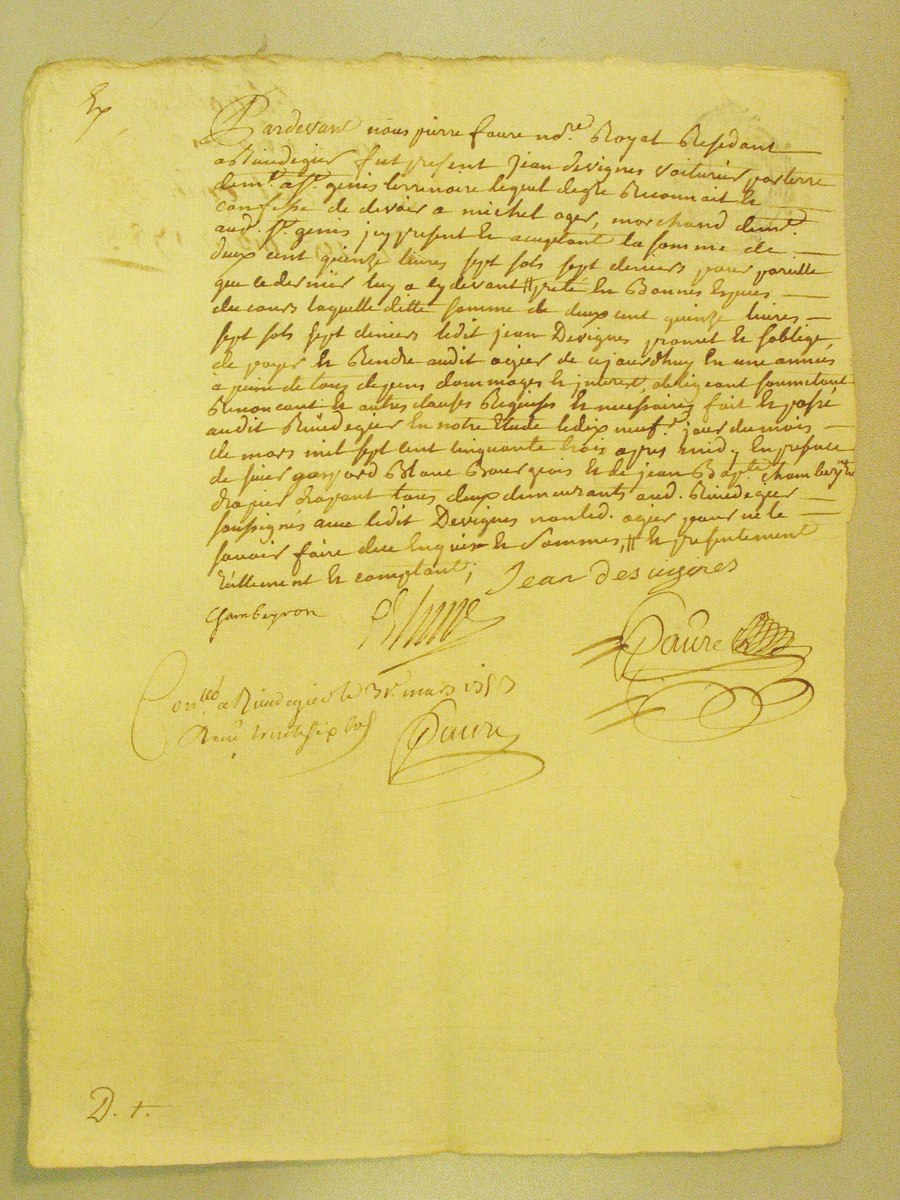 Ex
Pardevant nous pierre faure no.re Royal Residant
a Rivedegier fut present jean devignes voiturier par terre
dem.t a S.t genis terrenoire lequel de gré Reconnait et
confesse de devoir a michel ogier, marchand dem.t
aud. S.t genis icy present et aceptant la somme de
deux cent quinze livres sept sols sept deniers pour pareille
que ce dernier luy a cy devant # preté en Bonnes Especes
du cours laquelle ditte somme de deux cent quinze livres
sept sols sept deniers ledit jean Devignes promet et soblige
de payer et Rendre audit ogier de cejourdhuy En une années
a peine de tous depens dommages et interest, obligeant soumetant
Renoncant et autres clauses Requises et necessaires fait et passé
audit Rivedegier En notre Etude le dix neuf.e jour du mois
de mars mil sept cent cinquante trois apres midy En presence
de sieur gaspard Blanc Bourgeois et de jean Bap.te chambeyron
drapier drapant tous deux demeurants aud. Rivedegier
soussignés avec ledit Devignes non led. ogier pour ne le
savoir faire de ce Enquis et Sommes, # et presentement
réellement et comptant;
Jean des vignes
Chambeyron
Faure
Con.llé a Rivedegier le 31. mars 1753
Receu trente six sols
Faure
D. +.